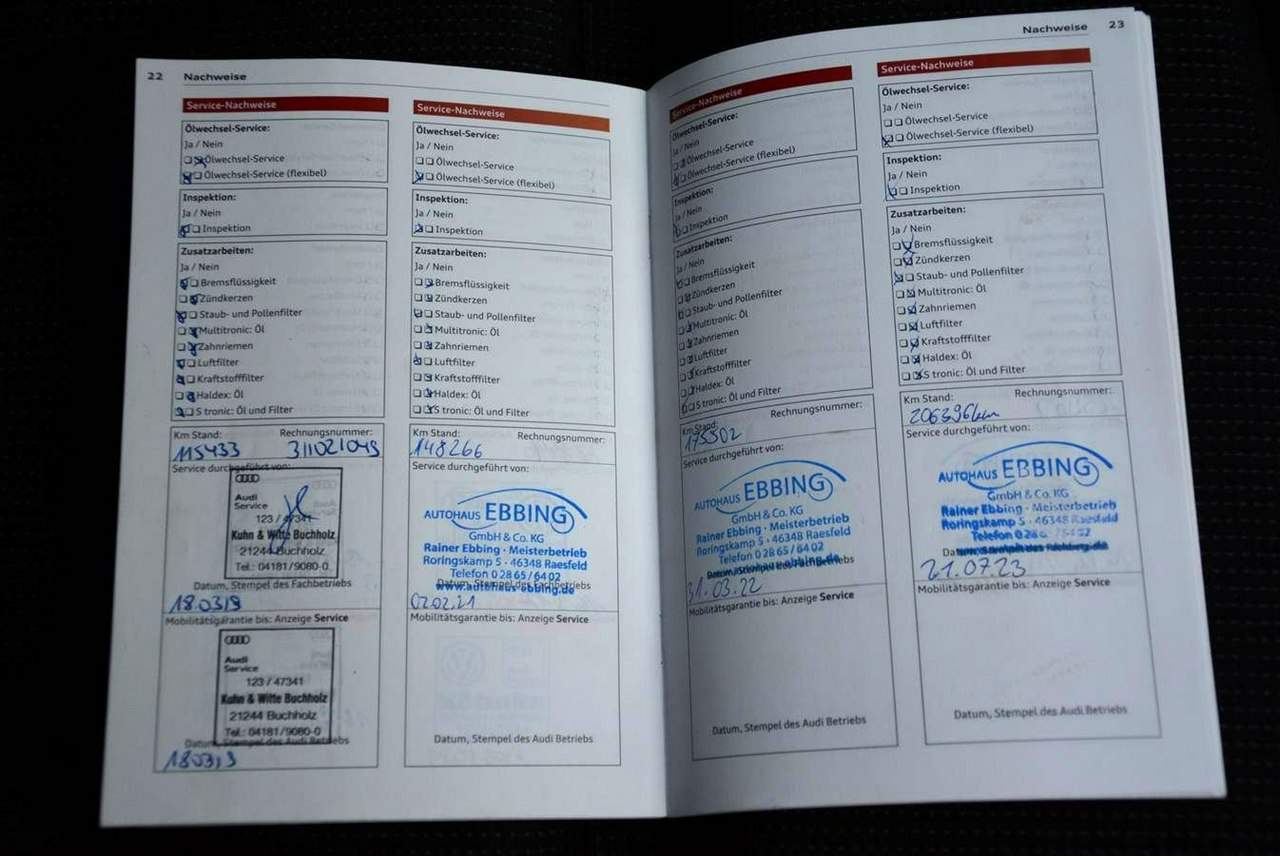 22 Nachweise
Service-Nachweise
Ölwechsel-Service:
Ja / Nein
Ölwechsel-Service
Ölwechsel-Service (flexibel)
Inspektion:
Ja / Nein
Inspektion
Zusatzarbeiten:
Ja / Nein
Bremsflüssigkeit
Zündkerzen
Staub- und Pollenfilter
Multitronic: Öl
Zahnriemen
Luftfilter
Kraftstofffilter
Haldex: Öl
S tronic: Öl und Filter
Km Stand: Rechnungsnummer:
115433 311021049
Service durchgeführt von:
Audi
Service
123 / 47341
Kuhn & Witte Buchholz
21244 Buchholz
Tel.: 04181/9080-0
Datum, Stempel des Fachbetriebs
18.03.19
Mobilitätsgarantie bis: Anzeige Service
Audi
Service
123 / 47341
Kuhn & Witte Buchholz
21244 Buchholz
Tel.: 04181/9080-0
Datum, Stempel des Audi Betriebs
18.03.19
Service-Nachweise
Ölwechsel-Service:
Ja / Nein
Ölwechsel-Service
Ölwechsel-Service (flexibel)
Inspektion:
Ja / Nein
Inspektion
Zusatzarbeiten:
Ja / Nein
Bremsflüssigkeit
Zündkerzen
Staub- und Pollenfilter
Multitronic: Öl
Zahnriemen
Luftfilter
Kraftstofffilter
Haldex: Öl
S tronic: Öl und Filter
Km Stand: Rechnungsnummer:
148266
Service durchgeführt von:
AUTOHAUS EBBING
GmbH & Co. KG
Rainer Ebbing · Meisterbetrieb
Roringskamp 5 · 46348 Raesfeld
Telefon 0 28 65 / 64 02
Datum, Stempel des Fachbetriebs
www.autohaus-ebbing.de
02.02.21
Mobilitätsgarantie bis: Anzeige Service
Datum, Stempel des Audi Betriebs
Nachweise 23
Service-Nachweise
Ölwechsel-Service:
Ja / Nein
Ölwechsel-Service
Ölwechsel-Service (flexibel)
Inspektion:
Ja / Nein
Inspektion
Zusatzarbeiten:
Ja / Nein
Bremsflüssigkeit
Zündkerzen
Staub- und Pollenfilter
Multitronic: Öl
Zahnriemen
Luftfilter
Kraftstofffilter
Haldex: Öl
S tronic: Öl und Filter
Km Stand: Rechnungsnummer:
175502
Service durchgeführt von:
AUTOHAUS EBBING
GmbH & Co. KG
Rainer Ebbing · Meisterbetrieb
Roringskamp 5 · 46348 Raesfeld
Telefon 0 28 65 / 64 02
www.autohaus-ebbing.de
Datum, Stempel des Fachbetriebs
31.03.22
Mobilitätsgarantie bis: Anzeige Service
Datum, Stempel des Audi Betriebs
Service-Nachweise
Ölwechsel-Service:
Ja / Nein
Ölwechsel-Service
Ölwechsel-Service (flexibel)
Inspektion:
Ja / Nein
Inspektion
Zusatzarbeiten:
Ja / Nein
Bremsflüssigkeit
Zündkerzen
Staub- und Pollenfilter
Multitronic: Öl
Zahnriemen
Luftfilter
Kraftstofffilter
Haldex: Öl
S tronic: Öl und Filter
Km Stand: Rechnungsnummer:
206396km
Service durchgeführt von:
AUTOHAUS EBBING
GmbH & Co. KG
Rainer Ebbing · Meisterbetrieb
Roringskamp 5 · 46348 Raesfeld
Telefon
21.07.23
Mobilitätsgarantie bis: Anzeige Service
Datum, Stempel des Audi Betriebs